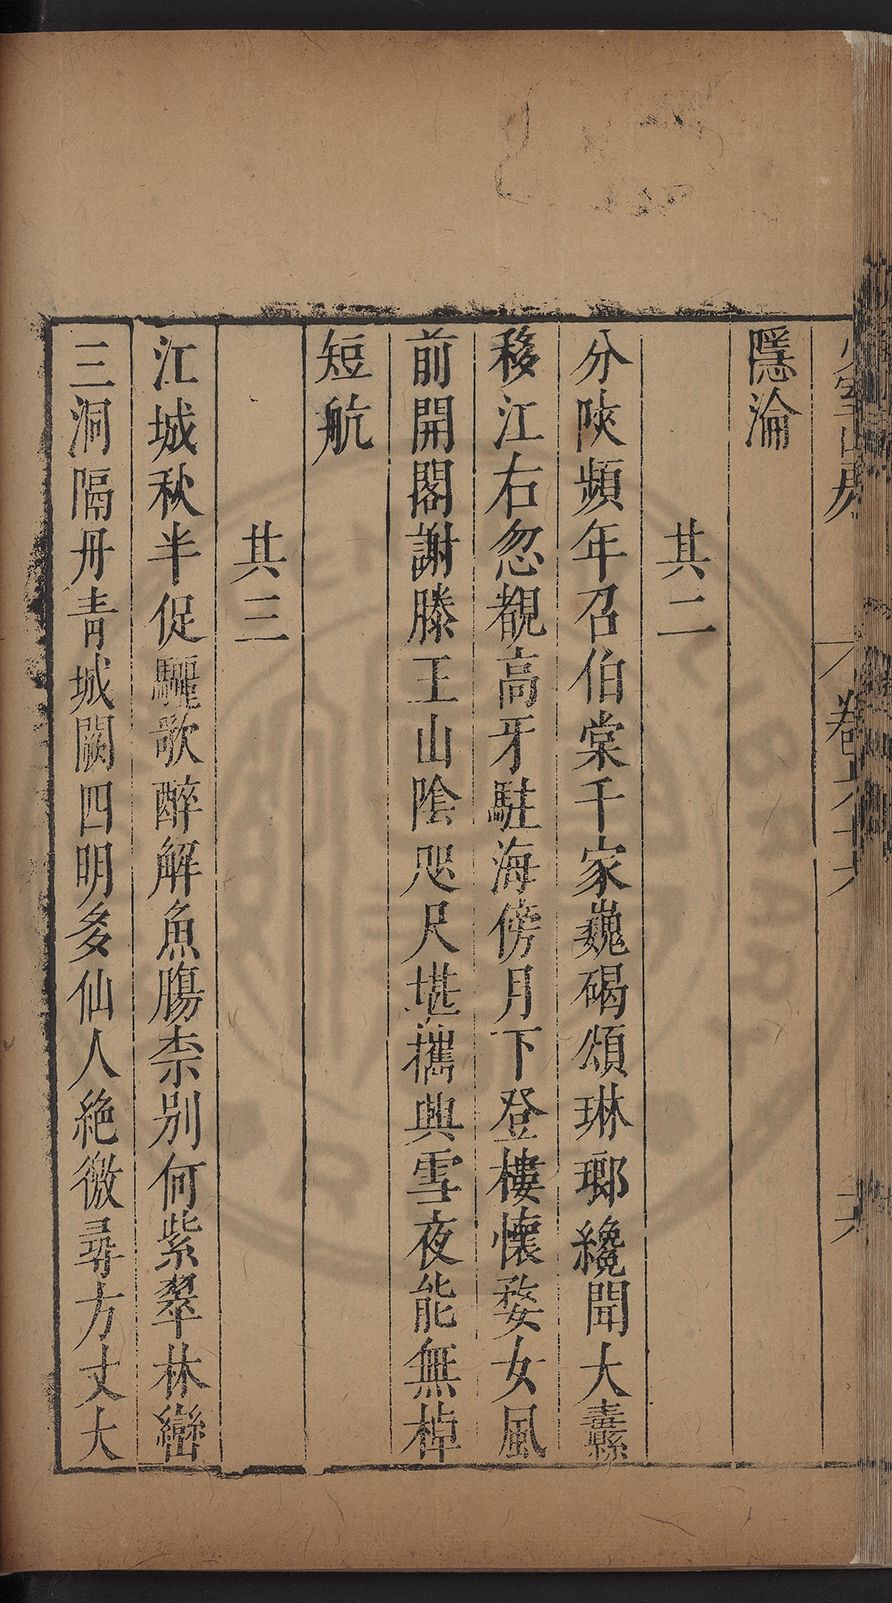 少室山房 卷六十六 六
隱淪
其二
分陝頻年召伯棠千家巍碣頌琳瑯纔聞大纛
移江右忽覩高牙駐海傍月下登樓懷婺女風
前開閣謝滕王山陰咫尺堪攜興雪夜能無棹
短航
其三
江城秋半促驪歌醉解魚腸柰別何紫翠林巒
三洞隔丹青城闕四明多仙人絶徼尋方丈大